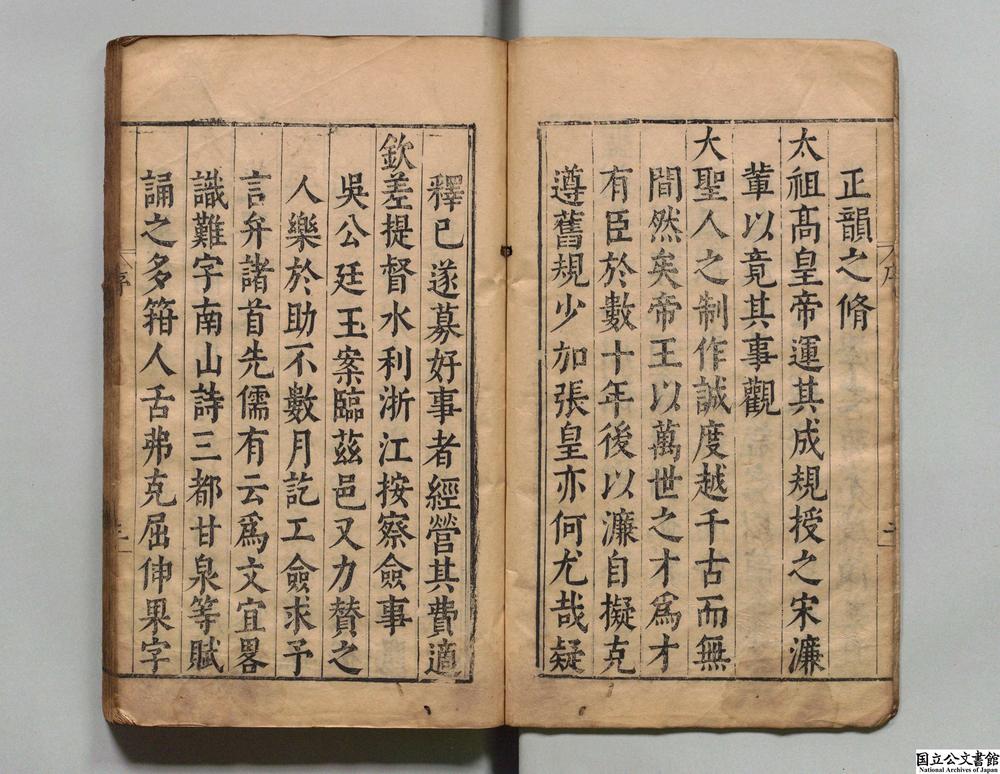 正韻之脩
太祖髙皇帝運其成規授之宋濂
輩以竟其事觀
大聖人之制作誠度越千古而無
間然矣帝王以萬世之才爲才
有臣於數十年後以濂自擬克
遵舊規少加張皇亦何尤哉疑
釋已遂募好事者經營其費適
欽差提督水利浙江按察僉事
吳公廷玉案臨茲邑又力賛之
人樂於助不數月訖工僉求予
言弁諸首先儒有云爲文宜畧
識難字南山詩三都甘泉等賦
誦之多箝人舌弗克屈伸果字
序
序
国立公文書館
National Archives of Japan